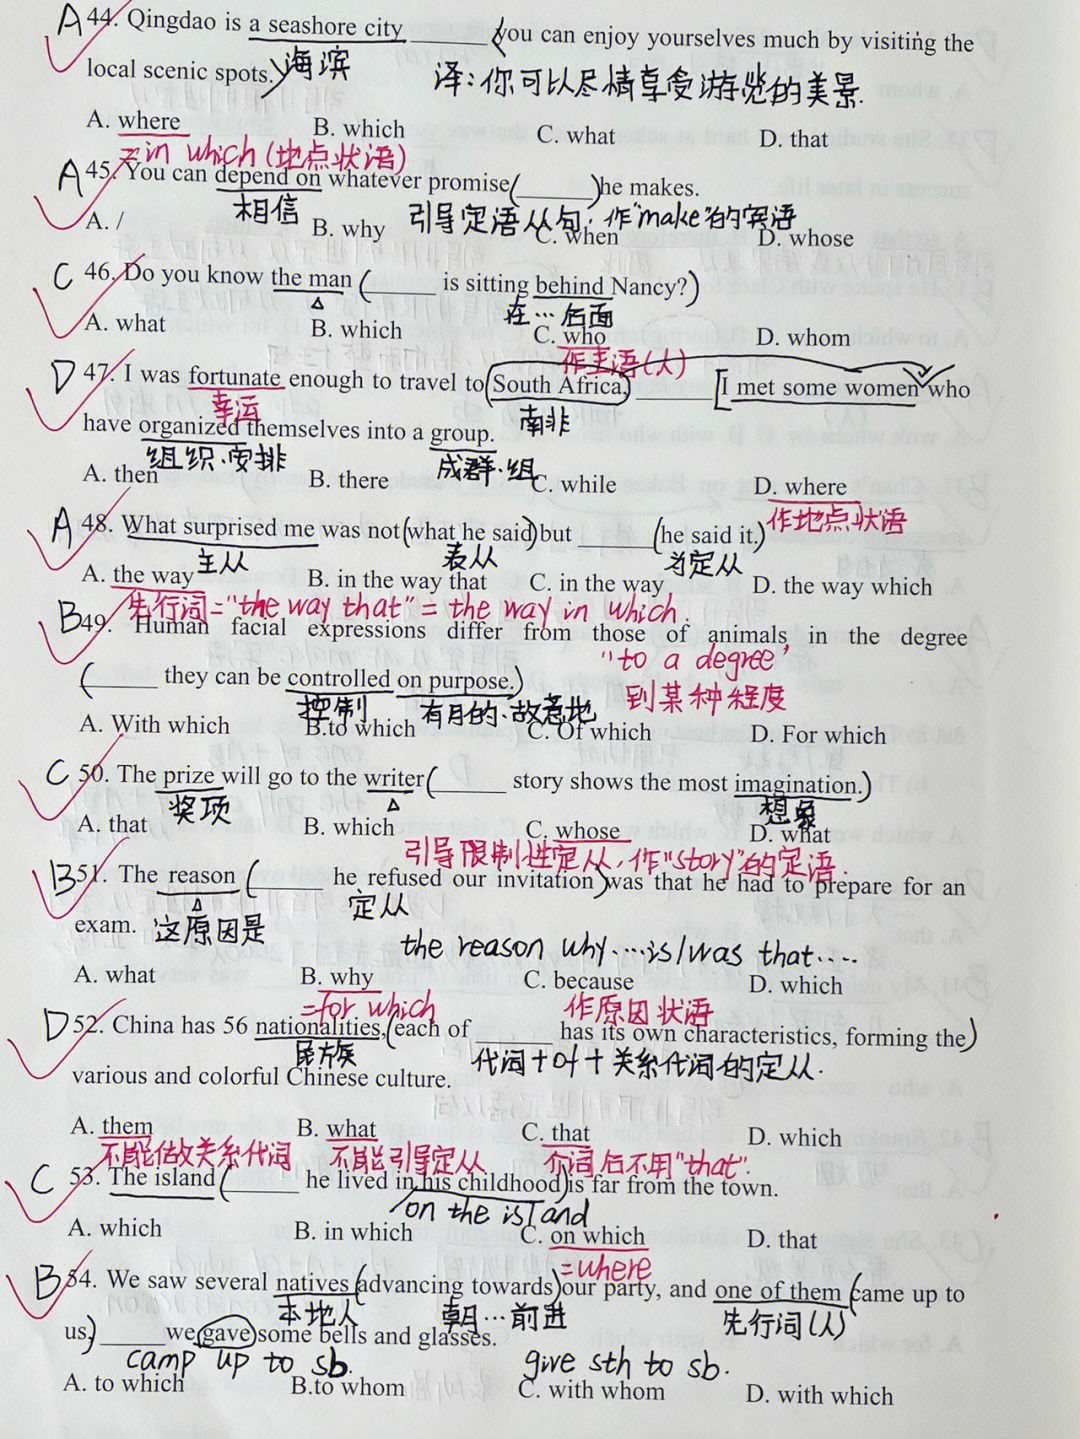 A 44. Qingdao is a seashore city ______ you can enjoy yourselves much by visiting the
local scenic spots. 海滨 译:你可以尽情享受游览的美景.
A. where B. which C. what D. that
=in which (地点状语)
A 45. You can depend on whatever promise (______) he makes.
相信 引导定语从句,作"make"的宾语
A. / B. why C. when D. whose
C 46. Do you know the man (______ is sitting behind Nancy?)
在…后面
A. what B. which C. who D. whom
作主语(人)
D 47. I was fortunate enough to travel to (South Africa,) ______ [I met some women who
幸运 南非
have organized themselves into a group.
组织.安排 成群.组
A. then B. there C. while D. where
作地点状语
A 48. What surprised me was not (what he said) but ______ (he said it.)
主从 表从 定从
A. the way B. in the way that C. in the way D. the way which
先行词="the way that"= the way in which.
B 49. Human facial expressions differ from those of animals in the degree
"to a degree"
(______ they can be controlled on purpose.)
控制 有目的.故意地 到某种程度
A. With which B.to which C. Of which D. For which
C 50. The prize will go to the writer (______ story shows the most imagination.)
奖项 想象
A. that B. which C. whose D. what
引导限制性定从,作"story"的定语.
B 51. The reason (______ he refused our invitation) was that he had to prepare for an
定从
exam. 这原因是
the reason why ……is/was that……
A. what B. why C. because D. which
=for which 作原因状语
D 52. China has 56 nationalities, (each of ______ has its own characteristics, forming the)
民族 代词+of+关系代词的定从.
various and colorful Chinese culture.
A. them B. what C. that D. which
不能做关系代词 不能引导定从 介词后不用"that".
C 53. The island (______ he lived in his childhood) is far from the town.
on the island
A. which B. in which C. on which D. that
=where
B 54. We saw several natives (advancing towards) our party, and one of them (came up to
本地人 朝…前进 先行词(人)
us,) ______ we gave some bells and glasses.
camp up to sb. give sth to sb.
A. to which B.to whom C. with whom D. with which